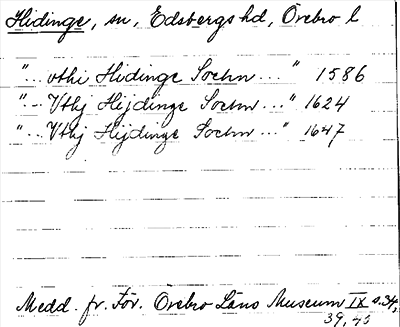 Hidinge, sn, Edsbergs hd, Örebro l
".. vthi Hidinge Sochn ..." 1586
"... Vthj Hijdinge Sochn ..." 1624
"... Vthj Hijdinge Sochn ..." 1647
Medd. fr. För. Örebro Läns Museum IX s. 34,
39, 45